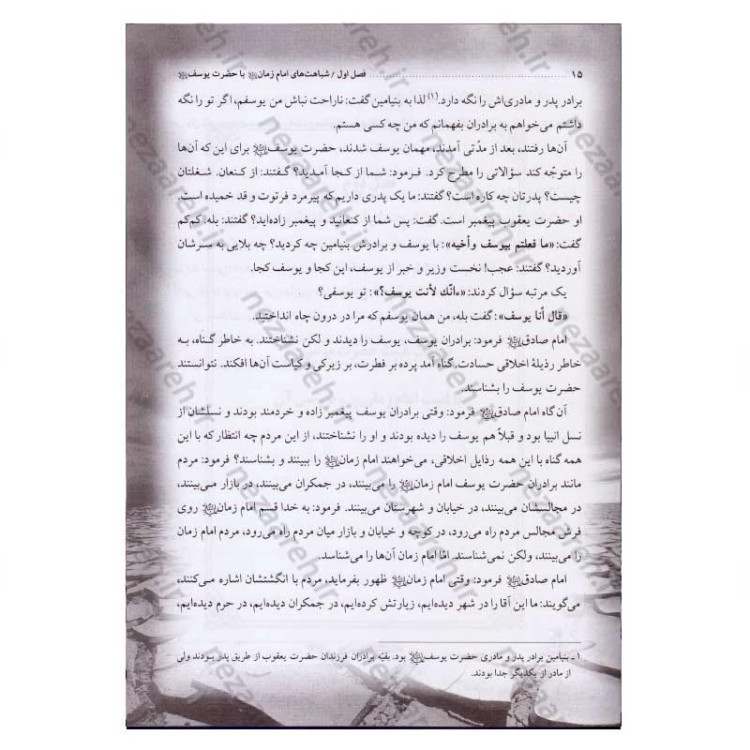 ۱۵ فصل اول / شباهت‌های امام زمان با حضرت یوسف
برادر پدر و مادری‌اش را نگه دارد.(۱) لذا به بنیامین گفت: ناراحت نباش من یوسفم، اگر تو را نگه
داشتم می‌خواهم به برادران بفهمانم که من چه کسی هستم.
آن‌ها رفتند، بعد از مدّتی آمدند، مهمان یوسف شدند، حضرت یوسف برای این که آن‌ها
را متوجّه کند سؤالاتی را مطرح کرد. فرمود: شما از کجا آمدید؟ گفتند: از کنعان. شغلتان
چیست؟ پدرتان چه کاره است؟ گفتند: ما یک پدری داریم که پیرمرد فرتوت و قد خمیده است.
او حضرت یعقوب پیغمبر است. گفت: پس شما از کنعانید و پیغمبر زاده‌اید؟ گفتند: بله. کم‌کم
گفت: «ما فعلتم بیوسف وأخیه»: با یوسف و برادرش بنیامین چه کردید؟ چه بلایی به سرشان
آوردید؟ گفتند: عجب! نخست وزیر و خبر از یوسف، این کجا و یوسف کجا.
یک مرتبه سؤال کردند: «ءانّك لأنت یوسف؟»: تو یوسفی؟
«قال أنا یوسف»: گفت بله، من همان یوسفم که مرا در درون چاه انداختید.
امام صادق فرمود: برادران یوسف، یوسف را دیدند و لکن نشناختند. به خاطر گناه، به
خاطر رذیلهٔ اخلاقی حسادت. گناه آمد پرده بر فطرت، بر زیرکی و کیاست آن‌ها افکند. نتوانستند
حضرت یوسف را بشناسند.
آن گاه امام صادق فرمود: وقتی برادران یوسف پیغمبر زاده و خردمند بودند و نسلشان از
نسل انبیا بود و قبلاً هم یوسف را دیده بودند و او را نشناختند، از این مردم چه انتظار که با این
همه گناه با این همه رذایل اخلاقی، می‌خواهند امام زمان را ببینند و بشناسند؟ فرمود: مردم
مانند برادران حضرت یوسف امام زمان را می‌بینند، در جمکران می‌بینند، در بازار می‌بینند،
در مجالسشان می‌بینند، در خیابان و شهرستان می‌بینند. فرمود: به خدا قسم امام زمان روی
فرش مجالس مردم راه می‌رود، در کوچه و خیابان و بازار میان مردم راه می‌رود، مردم امام زمان
را می‌بینند، ولکن نمی‌شناسند. امّا امام زمان آن‌ها را می‌شناسد.
امام صادق فرمود: وقتی امام زمان ظهور بفرماید، مردم با انگشتشان اشاره می‌کنند،
می‌گویند: ما این آقا را در شهر دیده‌ایم، زیارتش کرده‌ایم، در جمکران دیده‌ایم، در حرم دیده‌ایم،
۱ـ بنیامین برادر پدر و مادری حضرت یوسف بود. بقیّه برادران فرزندان حضرت یعقوب از طریق پدر بودند ولی
از مادر از یکدیگر جدا بودند.
nezaareh.ir